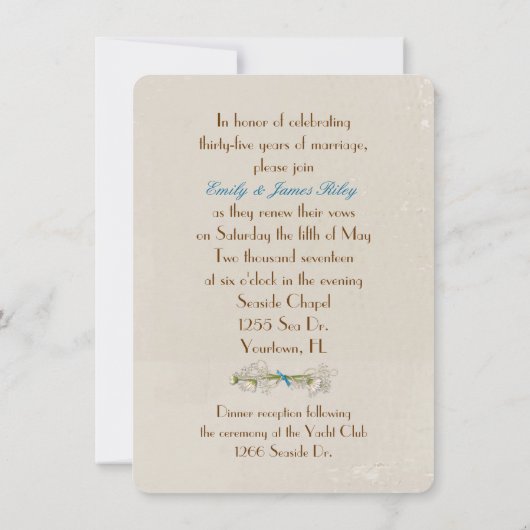 In honor of celebrating
thirty-five years of marriage,
please join
Emily & James Riley
as they renew their vows
on Saturday the fifth of May
Two thousand seventeen
at six o'clock in the evening
Seaside Chapel
1255 Sea Dr.
Yourtown, FL
Dinner reception following
the ceremony at the Yacht Club
1266 Seaside Dr.